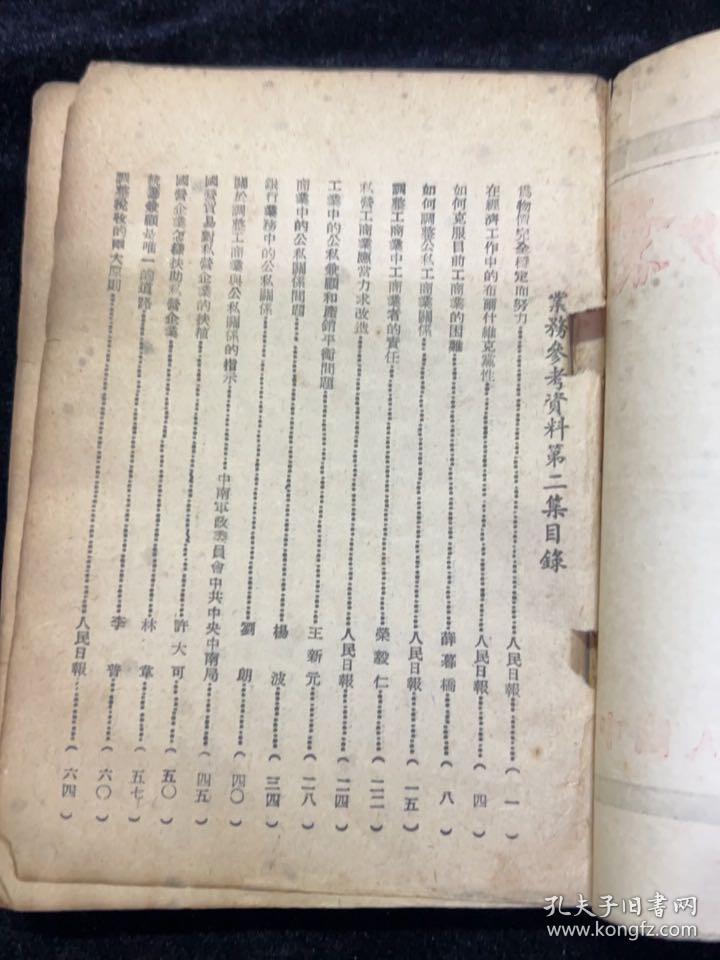 業務參考資料第二集目錄
爲物價完全穩定而努力……人民日報……(一)
在經濟工作中的布爾什維克黨性……人民日報……(四)
如何克服目前工商業的困難……薛暮橋……(八)
如何調整公私工商業關係……人民日報……(一五)
調整工商業中工商業者的責任……榮毅仁……(二二)
私營工商業應當力求改造……人民日報……(二四)
工業中的公私兼顧和產銷平衡問題……王新元……(二八)
商業中的公私關係問題……楊波……(三四)
銀行業務中的公私關係……劉朗……(四〇)
關於調整工商業與公私關係的指示……中南軍政委員會中共中央中南局……(四五)
國營貿易對私營企業的扶植……許大可……(五〇)
國營企業怎樣扶助私營企業……林韋……(五七)
統籌兼顧是唯一的道路……李普……(六〇)
調整稅收的兩大原則……人民日報……(六四)
孔夫子旧书网
www.kongfz.com